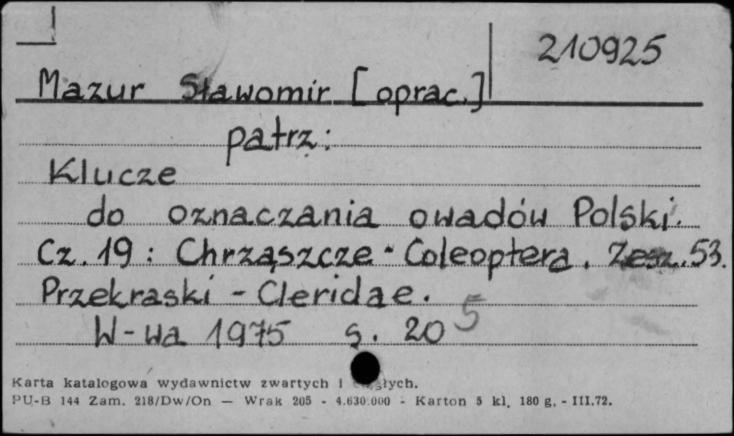 210925
Mazur Sławomir [oprac.]
patrz:
Klucze
do oznaczania owadów Polski.
Cz. 19 : Chrząszcze - Coleoptera. Zesz. 53.
Przekraski - Cleridae.
W-wa 1975 s. 20 5
Karta katalogowa wydawnictw zwartych i
PU-B 144 Zam. 218/Dw/On — Wrak 205 - 4.630.000 - Karton 5 kl. 180 g. - III.72.